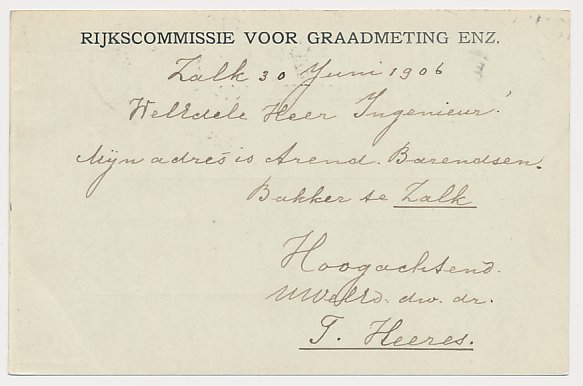 RIJKSCOMMISSIE VOOR GRAADMETING ENZ.
Zalk 30 Juni 1906
WelEdele Heer Ingenieur!
Mijn adres is Arend. Barendsen.
Bakker te Zalk
Hoogachtend.
UWelEd. dw. dr.
T. Heeres.